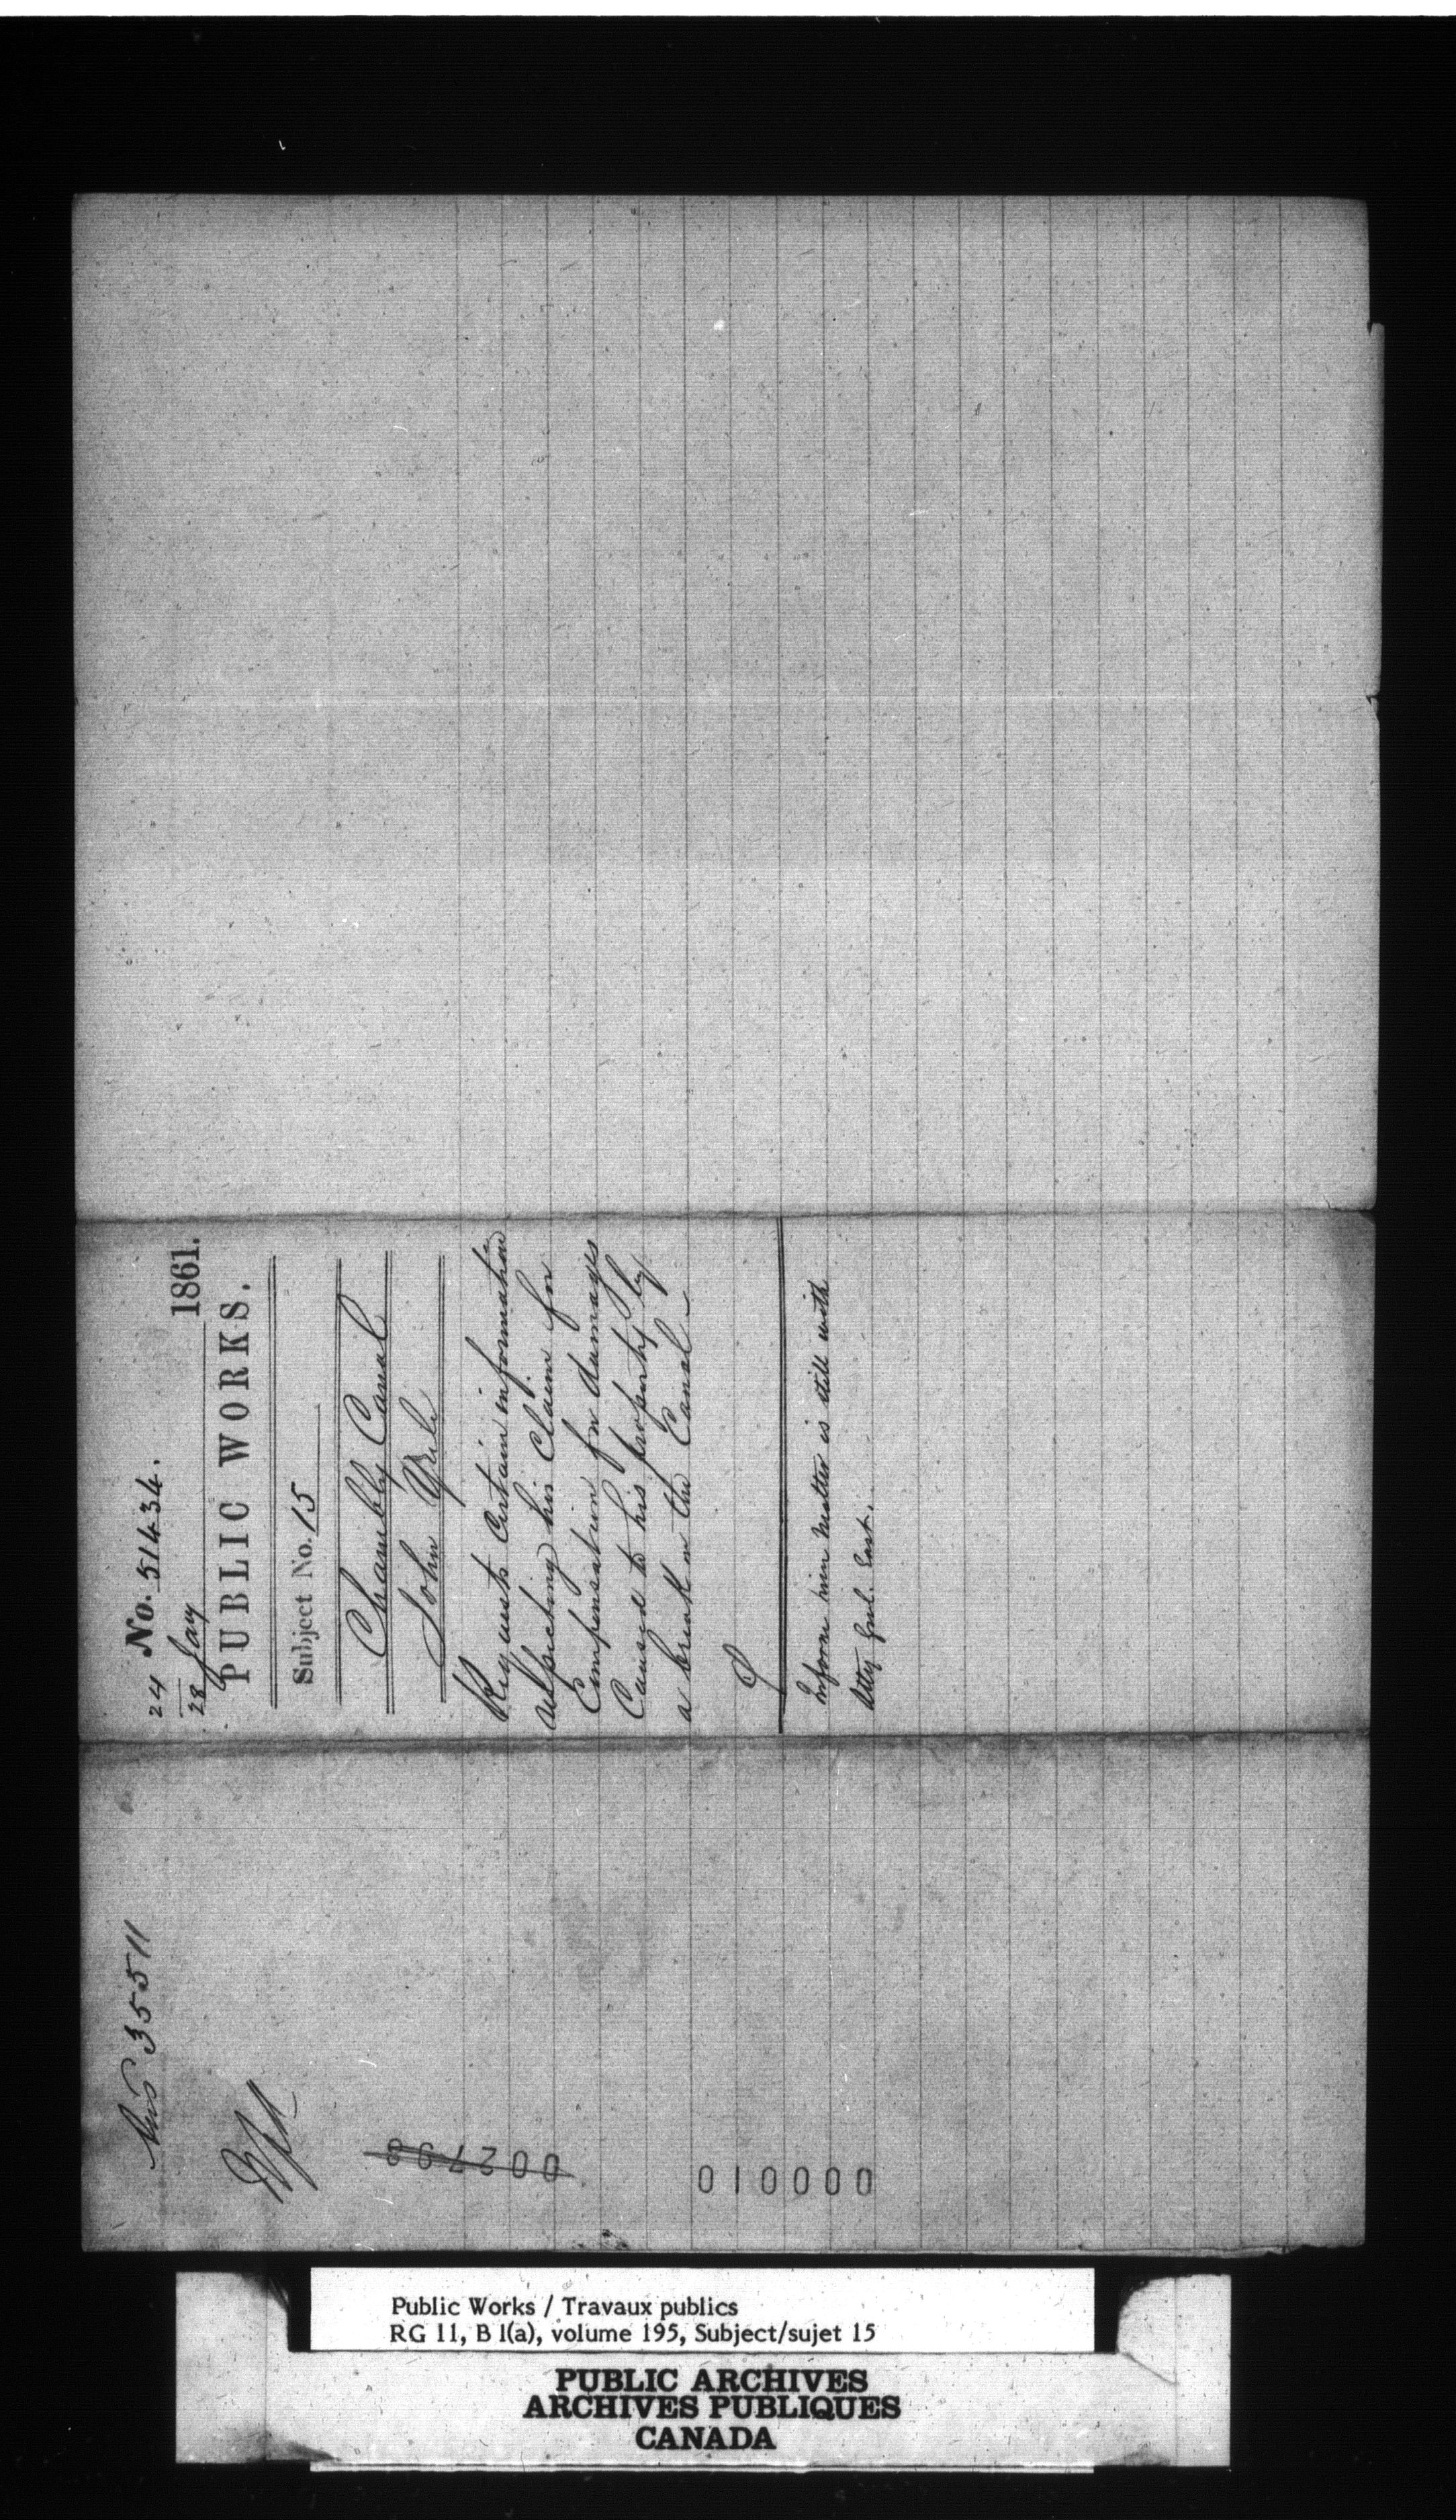 No. 51434.
24
28 Jany 1861.
PUBLIC WORKS.
Subject No. 15
Chambly Canal
John Yule
Requests Certain information
respecting his Claim for
Compensation for damages
Caused to his property by
a break in the Canal -
Inform him matter is still with
Atty Genl. East.
35511
002798
010000
Public Works / Travaux publics
RG 11, B 1(a), volume 195, Subject/sujet 15
PUBLIC ARCHIVES
ARCHIVES PUBLIQUES
CANADA